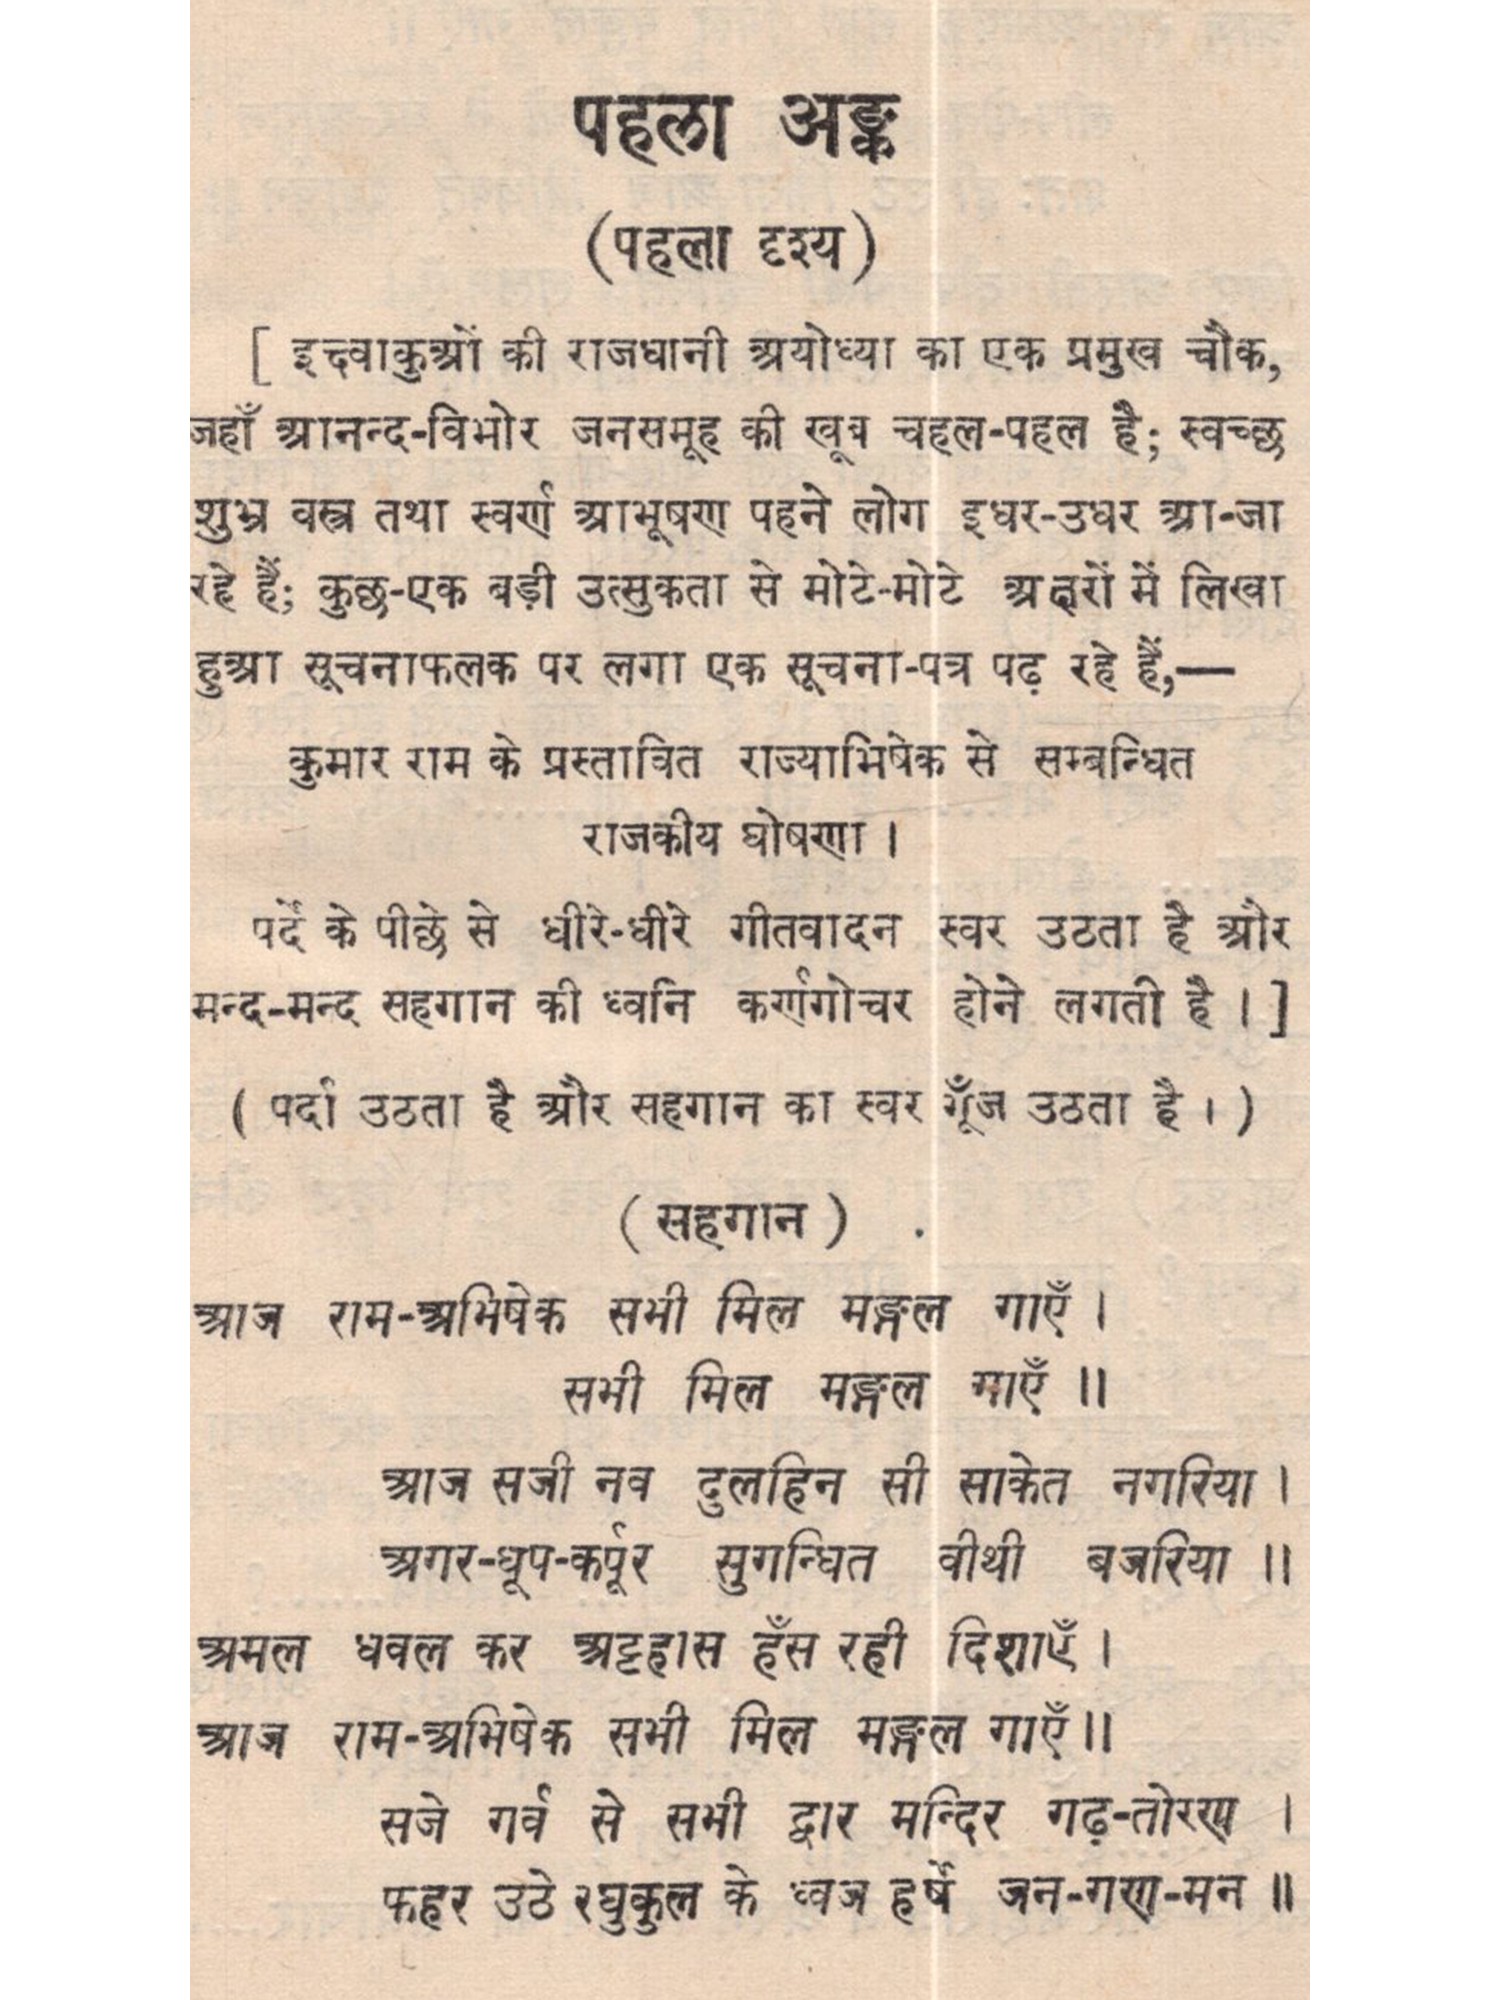 पहला अङ्क
(पहला दृश्य)
[ इक्ष्वाकुओं की राजधानी अयोध्या का एक प्रमुख चौक,
जहाँ आनन्द-विभोर जनसमूह की खूब चहल-पहल है; स्वच्छ
शुभ्र वस्त्र तथा स्वर्ण आभूषण पहने लोग इधर-उधर आ-जा
रहे हैं; कुछ-एक बड़ी उत्सुकता से मोटे-मोटे अक्षरों में लिखा
हुआ सूचनाफलक पर लगा एक सूचना-पत्र पढ़ रहे हैं,—
कुमार राम के प्रस्तावित राज्याभिषेक से सम्बन्धित
राजकीय घोषणा ।
पर्दे के पीछे से धीरे-धीरे गीतवादन स्वर उठता है और
मन्द-मन्द सहगान की ध्वनि कर्णगोचर होने लगती है । ]
( पर्दा उठता है और सहगान का स्वर गूँज उठता है । )
( सहगान )
आज राम-अभिषेक सभी मिल मङ्गल गाएँ ।
सभी मिल मङ्गल गाएँ ॥
आज सजी नव दुलहिन सी साकेत नगरिया ।
अगर-धूप-कर्पूर सुगन्धित वीथी बजरिया ॥
अमल धवल कर अट्टहास हँस रही दिशाएँ ।
आज राम-अभिषेक सभी मिल मङ्गल गाएँ ॥
सजे गर्व से सभी द्वार मन्दिर गढ़-तोरण ।
फहर उठे रघुकुल के ध्वज हर्षे जन-गण-मन ॥